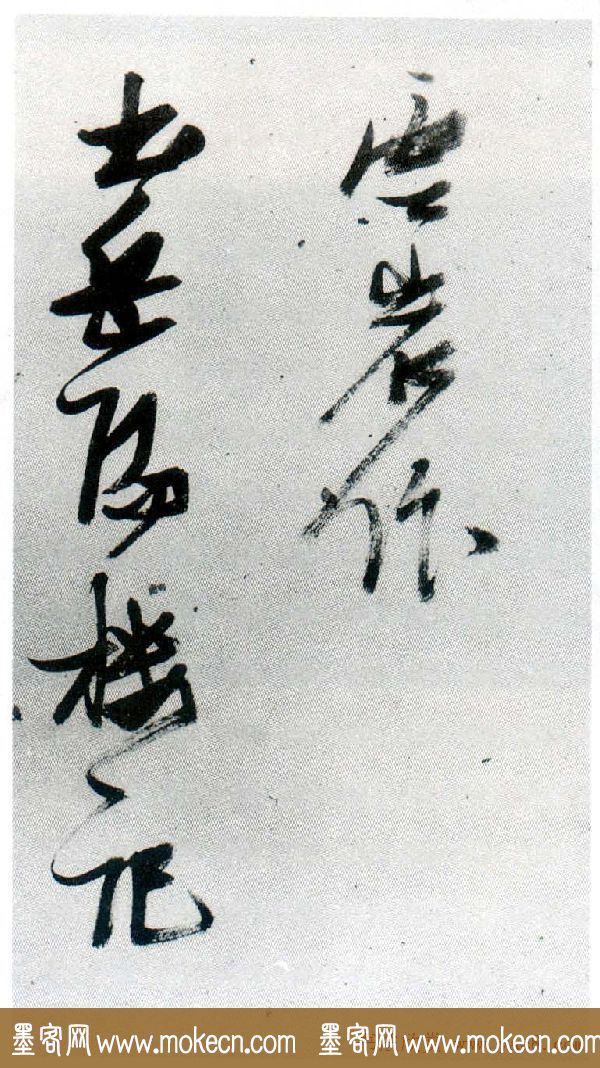 雲岩作
岳陽樓記
墨客网 www.mokecn.com 墨客网 www.mokecn.com